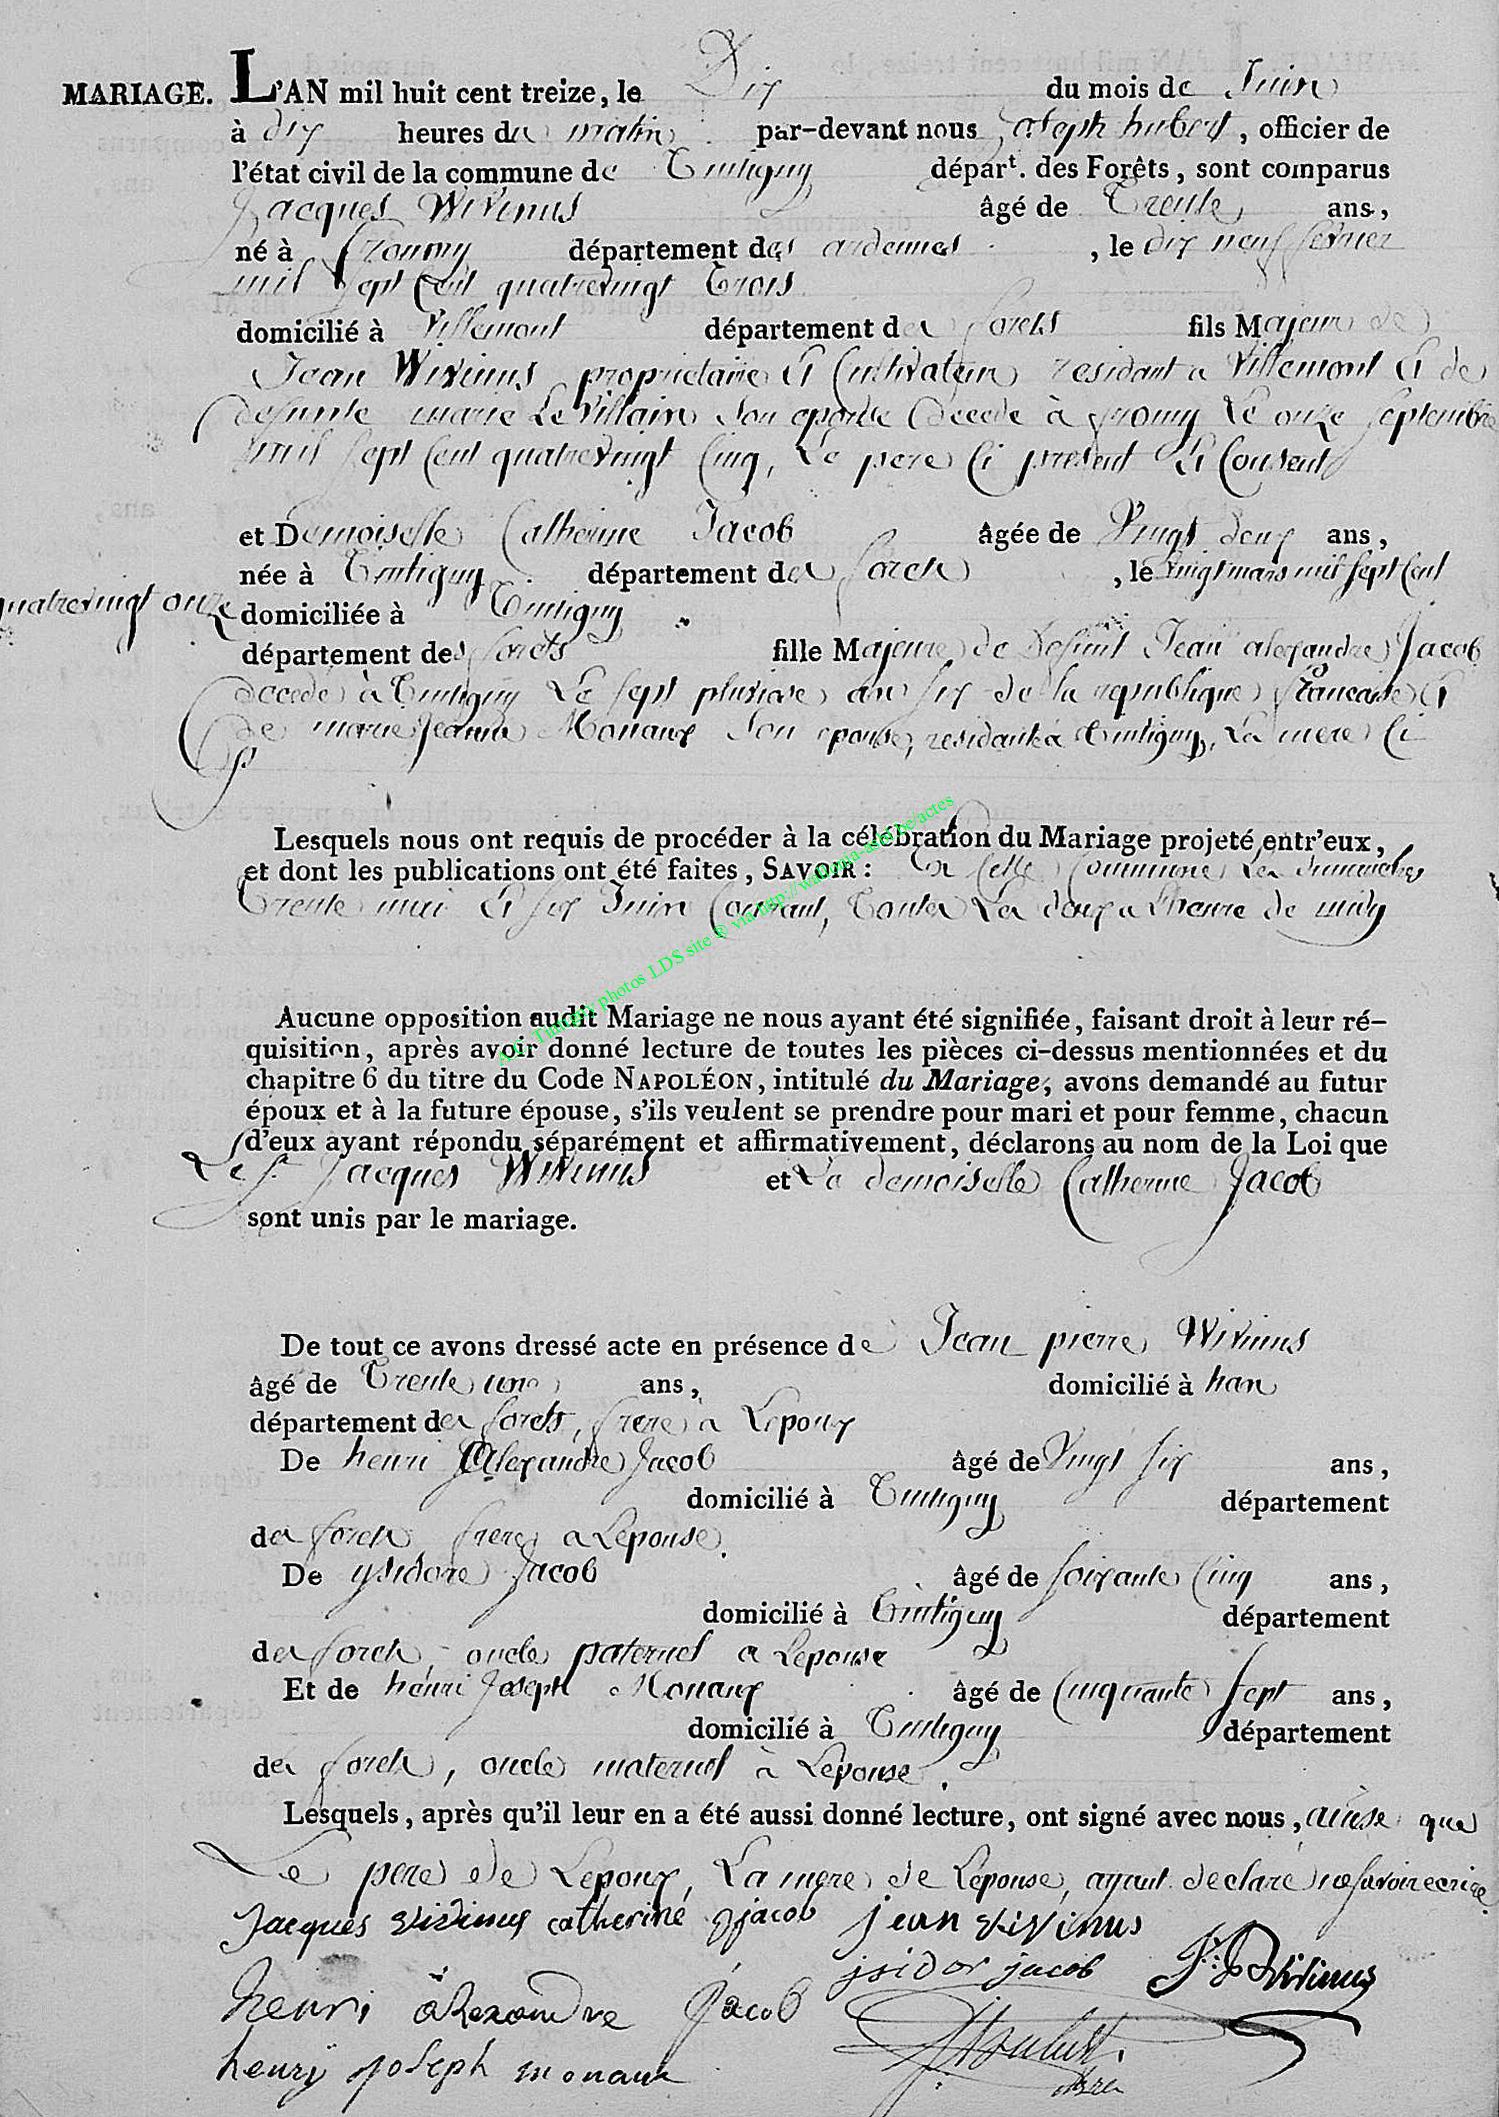 MARIAGE. L'AN mil huit cent treize, le Dix du mois de Juin
à dix heures du matin par-devant nous joseph hubert, officier de
l'état civil de la commune de Tintigny départ. des Forêts, sont comparus
Jacques Wivinus âgé de Trente ans,
né à fromy département des ardennes, le dix neuf fevrier
mil sept Cent quatrevingt Trois
domicilié à Villemont département des forets fils Majeur de
Jean Wivinus proprietaire Et Cultivateur residant a Villemont Et de
defunte marie Le Villain Son epouse decede à fromy Le onze Septembre
mil Sept Cent quatrevingt Cinq, Le pere Ci present Et Consent
et Demoiselle Catherine Jacob âgée de Vingt deux ans,
née à Tintigny département des forets, le vingt mars mil Sept Cent
quatrevingt onze domiciliée à Tintigny
département des forets fille Majeure de Defunt Jean alexandre Jacob
decedé à Tintigny Le Sept pluviose an Six de la republique francaise Et
de marie Jeanne Monaux Son epouse, residant à Tintigny, La mere Ci
Lesquels nous ont requis de procéder à la célébration du Mariage projeté entr'eux,
et dont les publications ont été faites, SAVOIR : En Cette Commune Les dimanches
Trente mai Et Six Juin Courant, Toutes Les deux a L'heure de midy
Aucune opposition audit Mariage ne nous ayant été signifiée, faisant droit à leur ré-
quisition, après avoir donné lecture de toutes les pièces ci-dessus mentionnées et du
chapitre 6 du titre du Code NAPOLÉON, intitulé du Mariage, avons demandé au futur
époux et à la future épouse, s'ils veulent se prendre pour mari et pour femme, chacun
d'eux ayant répondu séparément et affirmativement, déclarons au nom de la Loi que
Le Sr. Jacques Wivinus et La demoiselle Catherine Jacob
sont unis par le mariage.
De tout ce avons dressé acte en présence de Jean pierre Wivinus
âgé de Trente un ans, domicilié à han
département des forets, frere a Lepoux
De henri Alexandre Jacob âgé de Vingt Six ans,
domicilié à Tintigny département
des forets frere a Lepouse.
De ysidore Jacob âgé de Soixante Cinq ans,
domicilié à Tintigny département
des forets oncle paternel a Lepouse
Et de henri Joseph Monaux âgé de Cinquante Sept ans,
domicilié à Tintigny département
des forets, oncle maternel à Lepouse.
Lesquels, après qu'il leur en a été aussi donné lecture, ont signé avec nous, ainse que
Le pere de Lepoux, La mere de Lepouse, ayant declaré ne Savoir ecrire.
Jacques vivinus catherine jacob jean vivinus
jsidor jacob J. P. Wivinus
henri alexandre Jacob
henry joseph monaux J. hubert
A.C. Tintigny photos LDS site ® via http://wallonia-asbl.be/actes